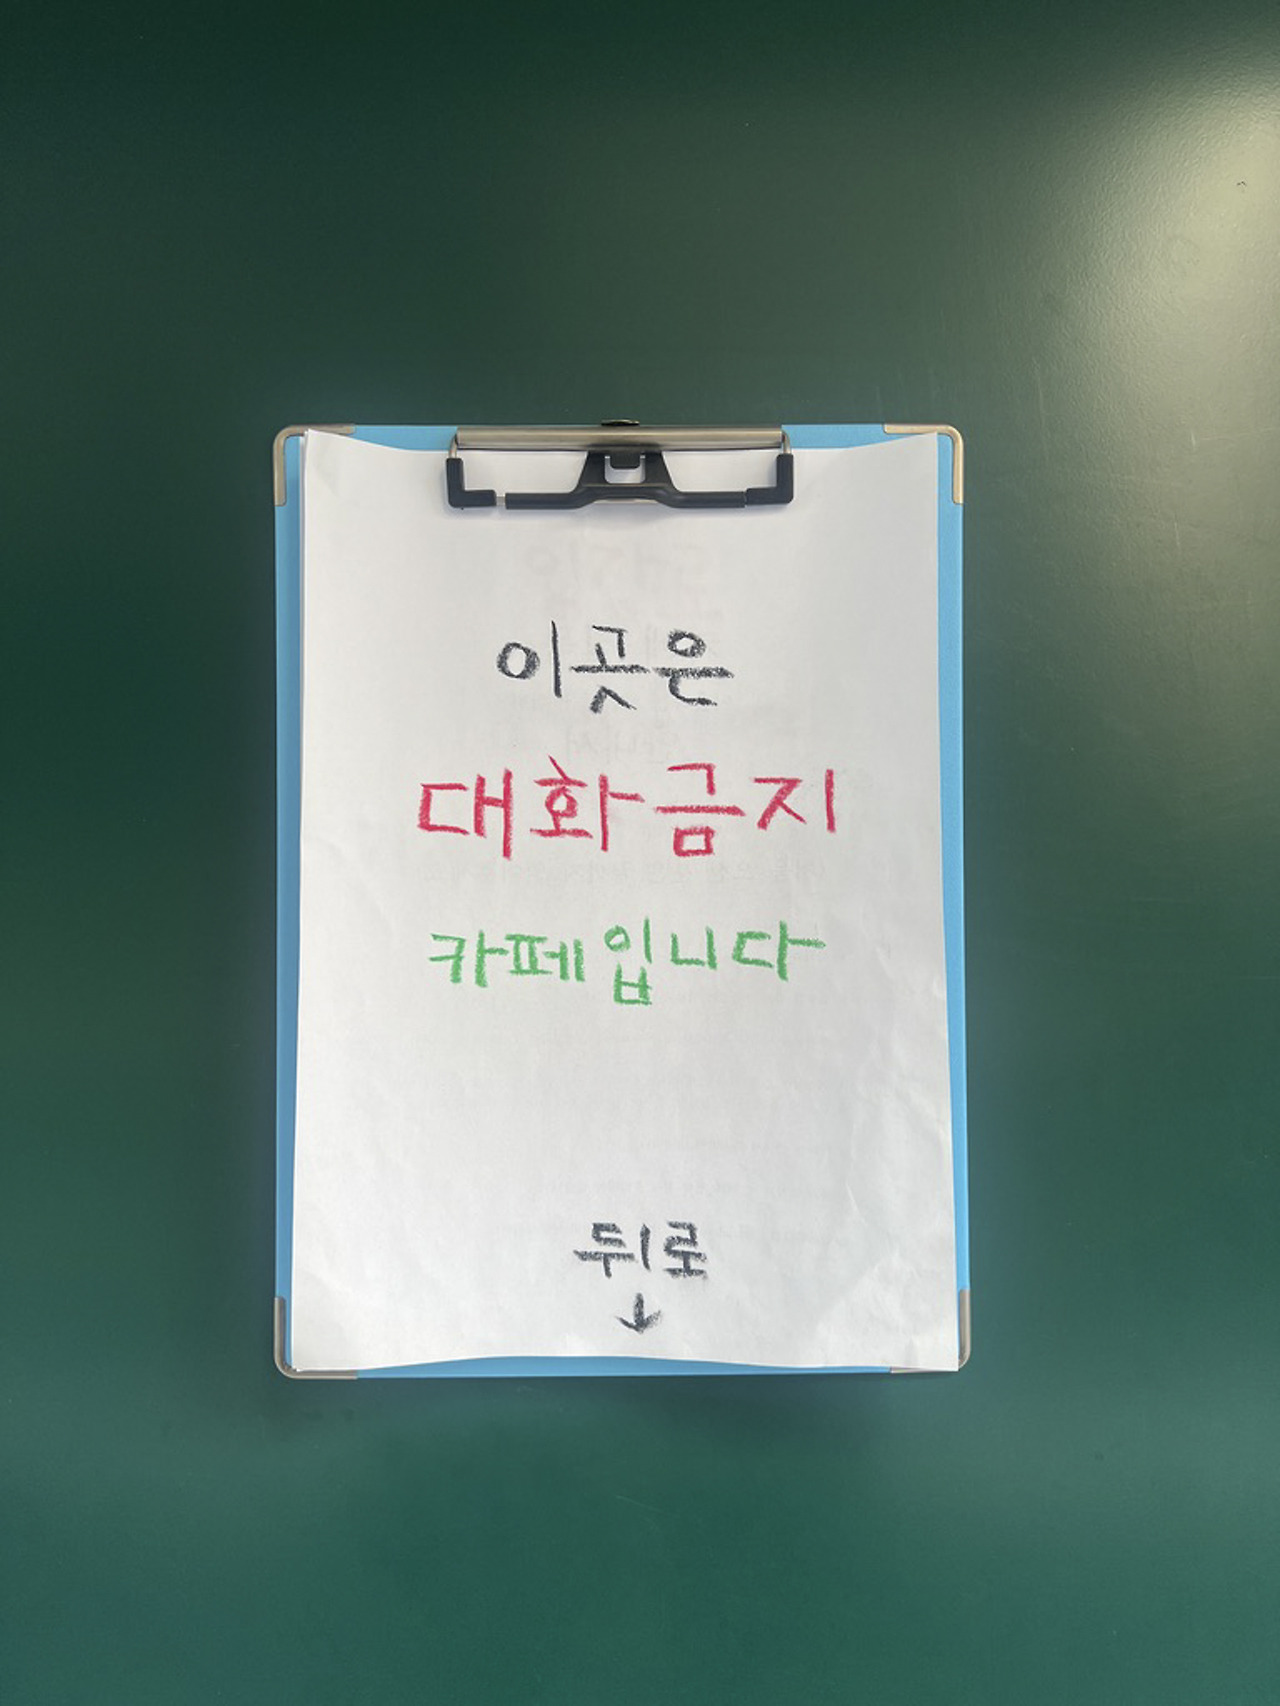 이곳은
대화금지
카페입니다
뒤로
↓